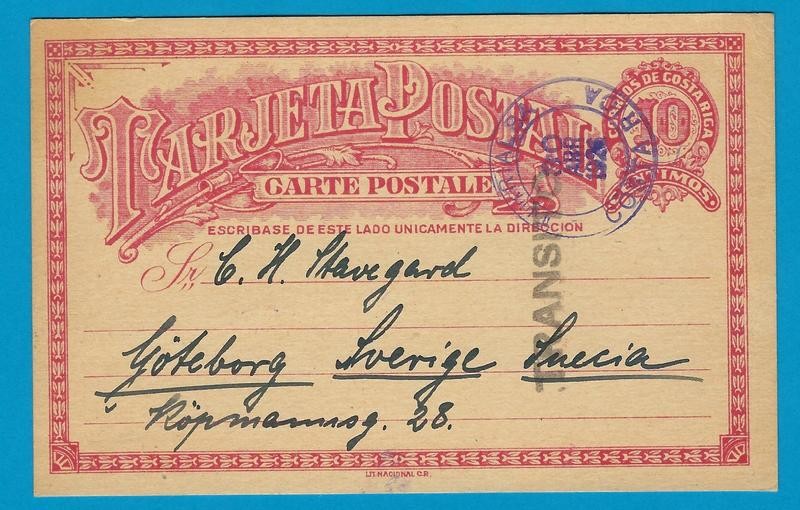 CORREOS DE COSTA RICA
10
CENTIMOS
TARJETA POSTAL
CARTE POSTALE
ESCRIBASE DE ESTE LADO UNICAMENTE LA DIRECCION
Sr. C. H. Stavegard
Göteborg Sverige Suecia
Köpmannsg. 28.
TRANSITO
LIT. NACIONAL C.R.